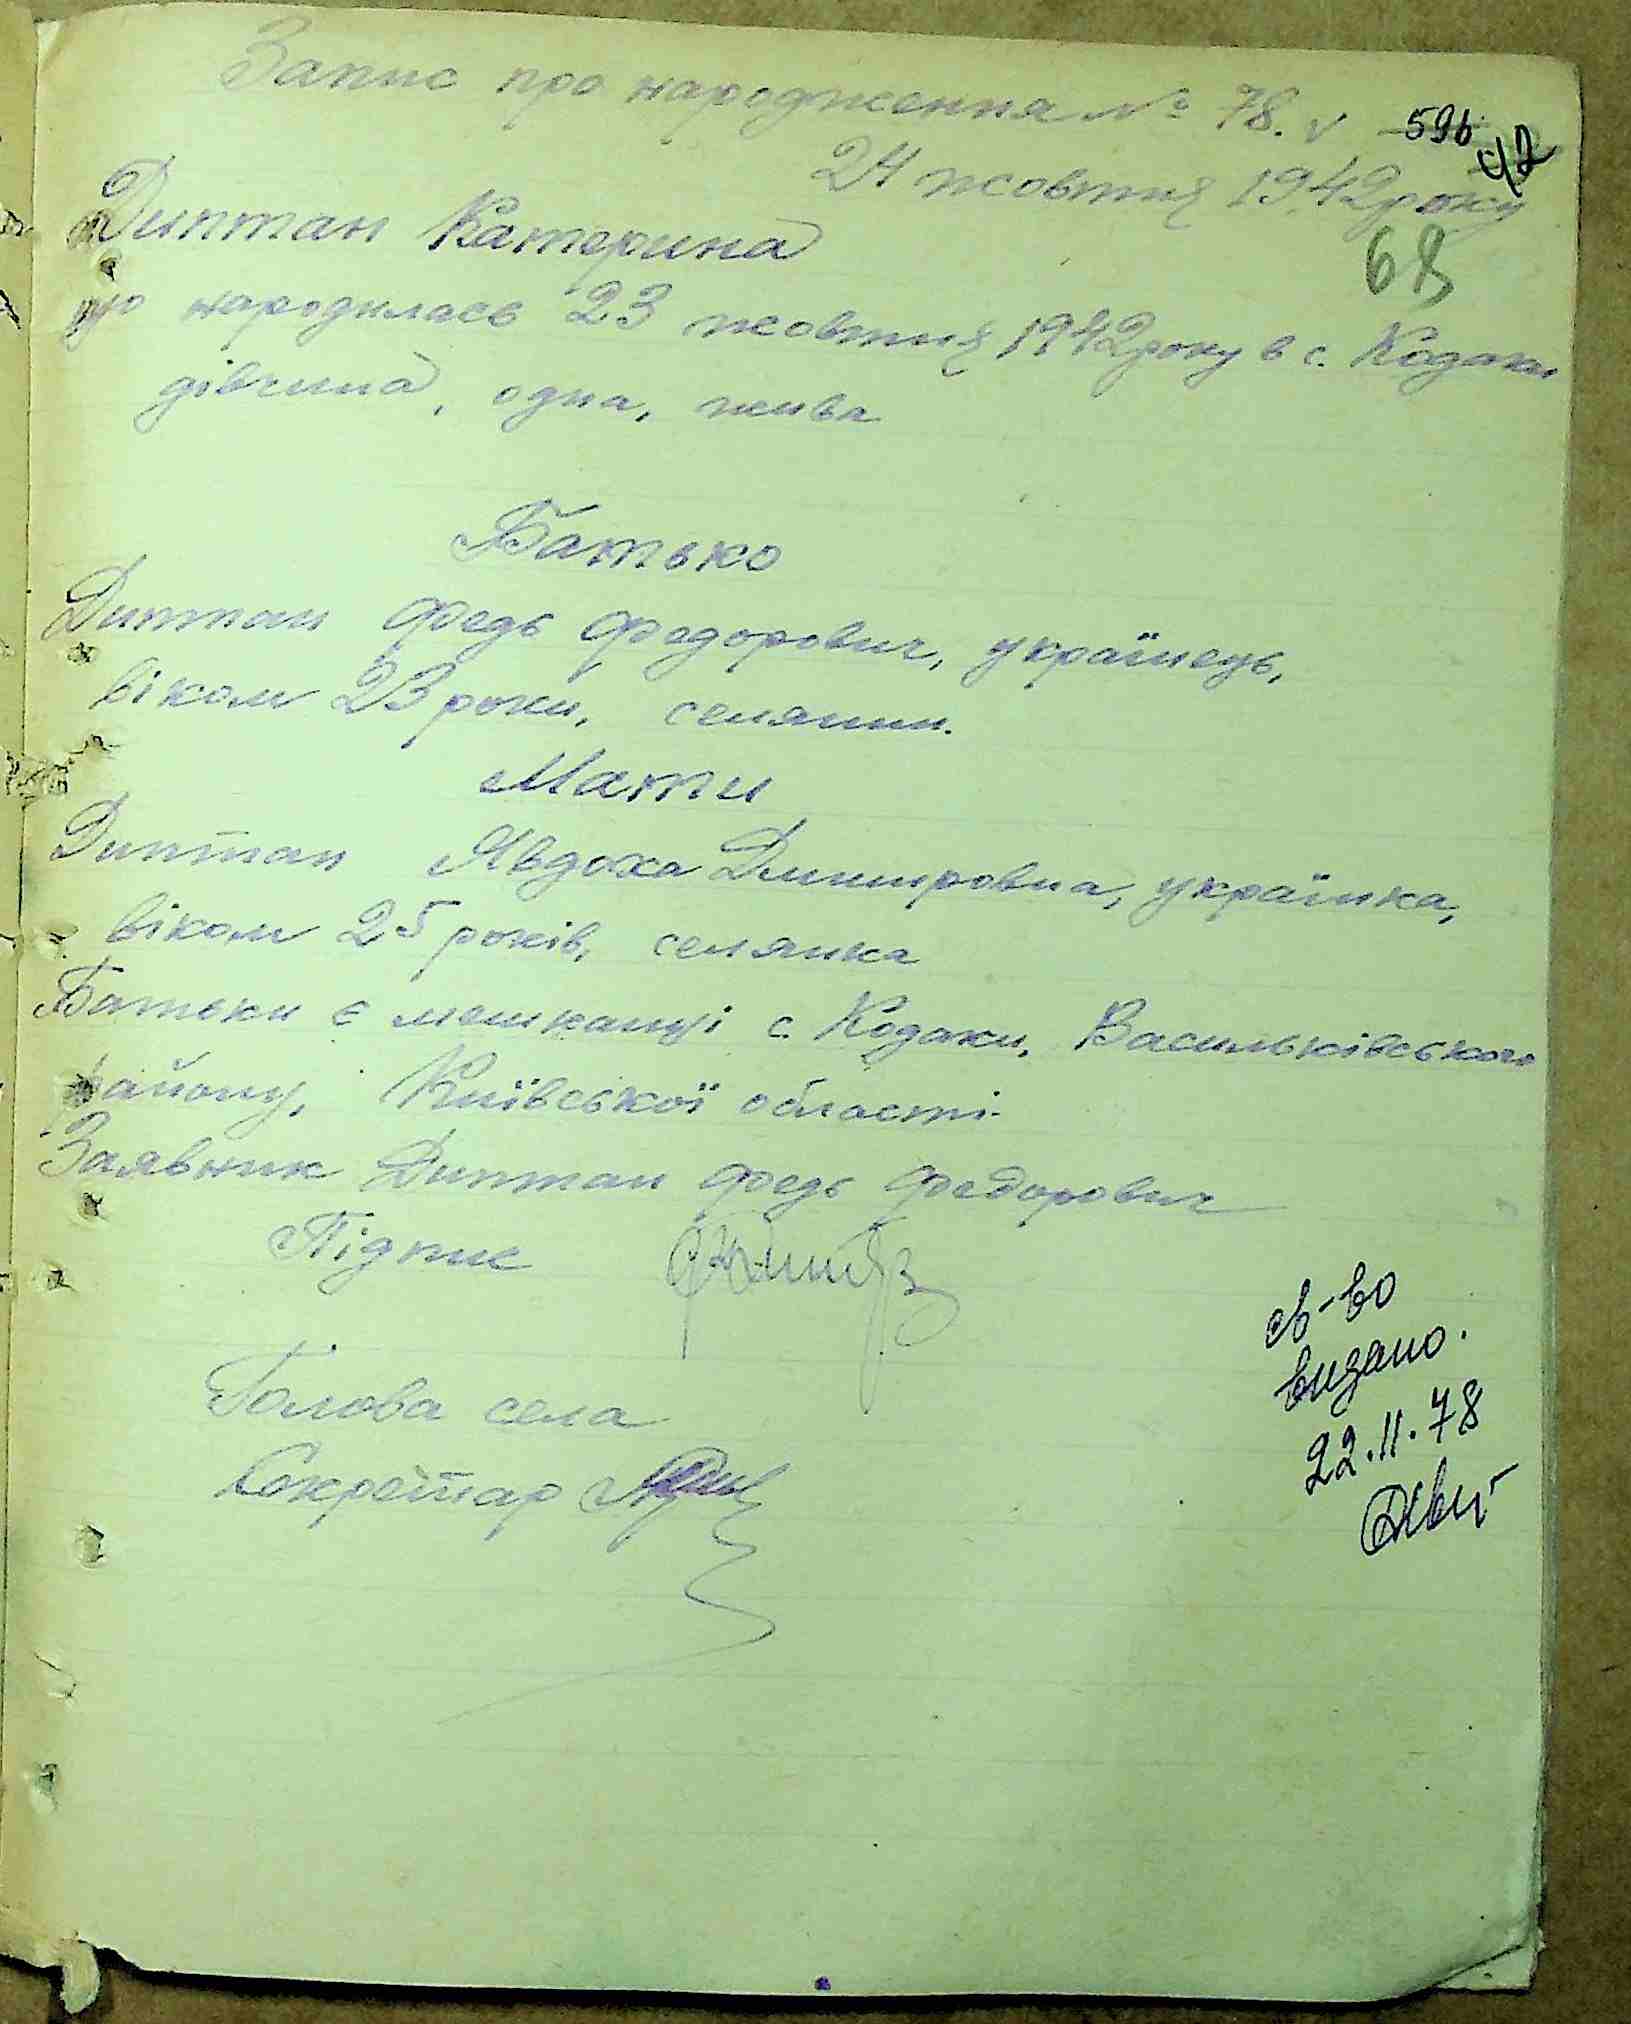 Запис про народження № 78. v 596 42
24 жовтня 1942 року
68
Диптан Катерина
що народилась 23 жовтня 1942 року в с. Кодаки
дівчина, одна, жива
Батько
Диптан Федь Федорович, українець,
віком 23 роки, селянин.
Мати
Диптан Явдоха Дмитровна, українка,
віком 25 років, селянка
Батьки є мешканці с. Кодаки, Васильківського
району, Київської області.
Заявник Диптан Федь Федорович
Підпис
Голова села
Секретар
св-во
видано.
22.11.78